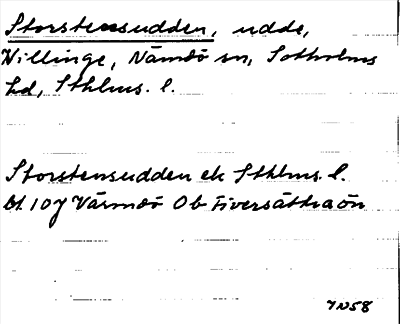 Storstensudden, udde,
Villinge, Nämdö sn, Sotholms
hd, Sthlms. l.
Storstensudden ek Sthlms. l.
bl. 107 Värmdö Ob Fiversättraön
7N58